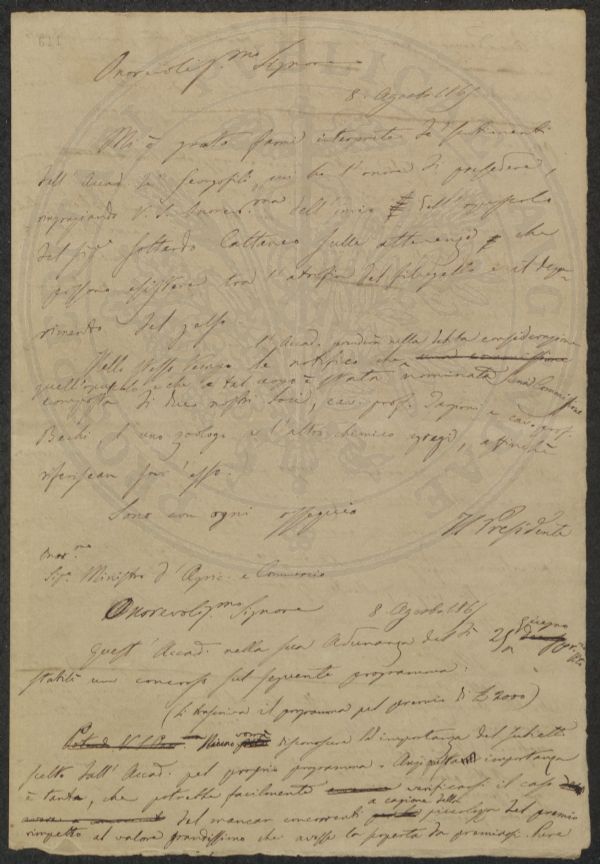 Onorevoliss.mo Signore
8. Agosto 1865
Mi è grato farmi interprete de' sentimenti
dell'Accad. de' Georgofili, cui ho l'onore di presedere,
ringraziando V. S. Onorev.ma dell'invio dell'opuscolo
del Sig.r Gottardo Cattaneo sulle attenenze che
possono esistere tra l'atrofia del filugello e il depe-
rimento del gelso.
Nello stesso tempo le notifico che l'Accad. prenderà nella debita considerazione
quell'opuscolo e che a tal uopo è stata nominata una Commissione
composta di due nostri Socj, cav. prof. Targioni e cav. prof.
Bechi l'uno zoologo e l'altro chimico egregj, affinchè
riferiscan sovr'esso.
Sono con ogni ossequio
Il Presidente
Onor.mo
Sig.r Ministro d'Agric. e Commercio
Onorevoliss.mo Signore 8 Agosto 1865
Quest'Accad. nella sua Adunanza del dì 25 Giugno
stabilì un concorso sul seguente programma:
(Si trascriva il programma pel premio di £ 2000)
Niuno vorrà disconoscere la importanza del subietto
scelto dall'Accad. pel proprio programma. Anzi importanza
è tanta, che potrebbe facilmente verificarsi il caso
del mancar concorrenti a cagione della piccolezza del premio
rimpetto al valore grandissimo che avesse la scoperta da premiarsi. Per